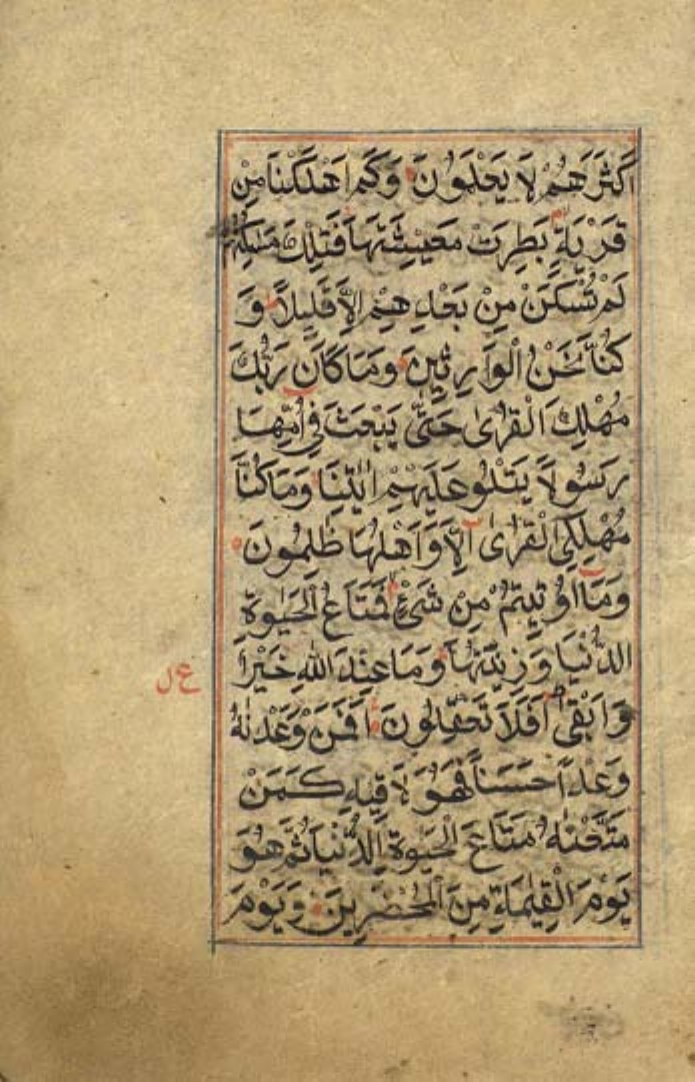 اَكْثَرَهُمْ لَا يَعْلَمُوْنَ وَكَمْ اَهْلَكْنَا مِنْ
قَرْيَةٍ بَطِرَتْ مَعِيْشَتَهَا فَتِلْكَ مَسٰكِنُهُمْ
لَمْ تُسْكَنْ مِنْ بَعْدِهِمْ اِلَّا قَلِيْلًا وَ
كُنَّا نَحْنُ الْوَارِثِيْنَ وَمَا كَانَ رَبُّكَ
مُهْلِكَ الْقُرٰى حَتّٰى يَبْعَثَ فِيْ اُمِّهَا
رَسُوْلًا يَتْلُوْ عَلَيْهِمْ اٰيٰتِنَا وَمَا كُنَّا
مُهْلِكِى الْقُرٰى اِلَّا وَاَهْلُهَا ظٰلِمُوْنَ
وَمَا اُوْتِيْتُمْ مِنْ شَيْءٍ فَمَتَاعُ الْحَيٰوةِ
الدُّنْيَا وَزِيْنَتُهَا وَمَا عِنْدَ اللّٰهِ خَيْرٌ
وَاَبْقٰى اَفَلَا تَعْقِلُوْنَ اَفَمَنْ وَعَدْنٰهُ
وَعْدًا حَسَنًا فَهُوَ لَاقِيْهِ كَمَنْ
مَتَّعْنٰهُ مَتَاعَ الْحَيٰوةِ الدُّنْيَا ثُمَّ هُوَ
يَوْمَ الْقِيٰمَةِ مِنَ الْمُحْضَرِيْنَ وَيَوْمَ